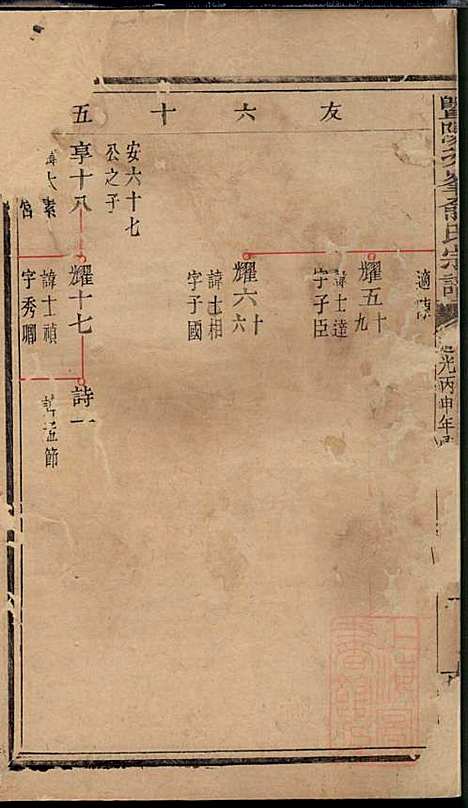 氏宗譜
光丙申年
友六十五
適陳
耀五十九
諱士達
字子臣
耀六十六
諱士相
字子國
安六十七
公之子
享十八
諱大素
耀十七
諱士禎
字秀卿
詩一
節